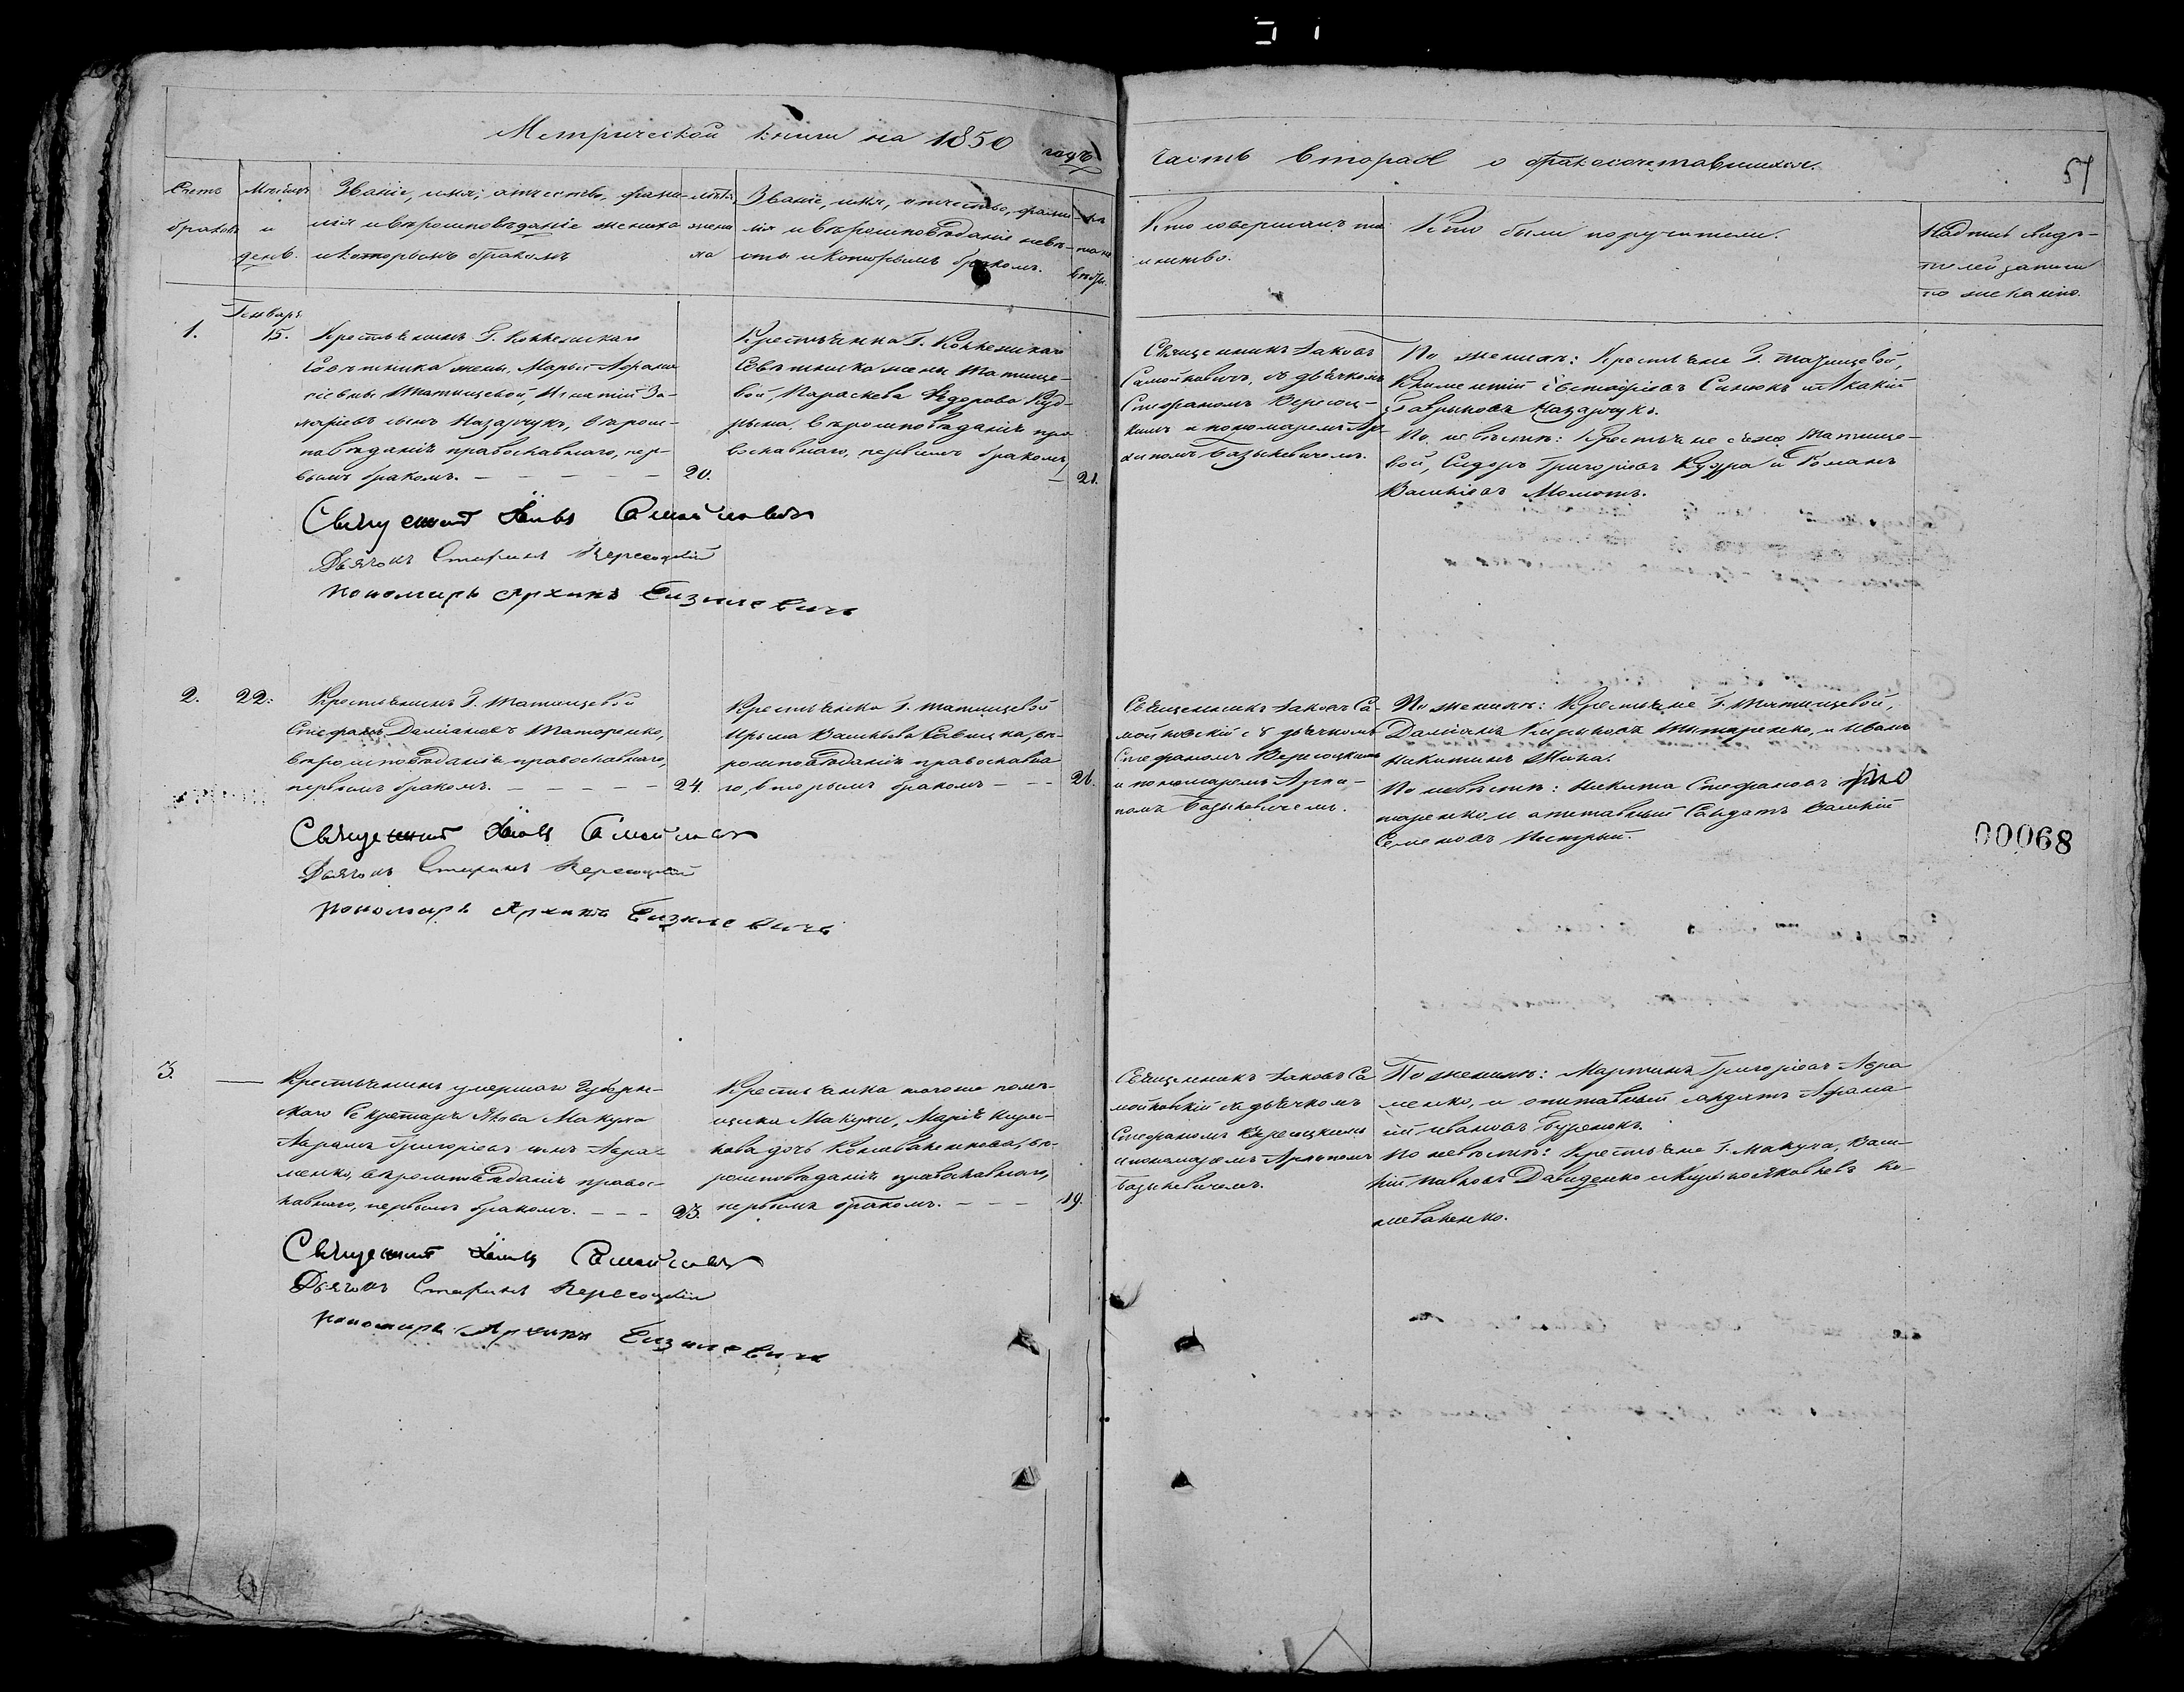 Метрической книги на 1850 годъ
часть вторая о бракосочетавшихся.
51
Счетъ браковъ
Мѣсяцъ и день.
Званіе, имя, отчество, фами-
лія и вѣроисповѣданіе жениха
и которымъ бракомъ
лѣта жени ха
Званіе, имя, отчество, фами-
лія и вѣроисповѣданіе невѣ-
сты и которымъ бракомъ.
Кто совершалъ та
инство.
Кто были поручители.
1.
Генваря
15.
Крестьянинъ Г. Коллежскаго
Совѣтника жены, Марьи Афана
сіевны Татищевой, Игнатій За-
харіевъ сынъ Назарчукъ, вѣроис-
повѣданія православнаго, пер-
вымъ бракомъ. — — — — —
20.
Крестьянка Г. Коллежскаго
Совѣтника жены Татище-
вой, Параскева Федорова Куд-
рына, вѣроисповѣданія пра
вославнаго, первымъ бракомъ
— 21.
Священникъ Іаковъ
Самойловичъ, съ дьячкомъ
Стефаномъ Вересоц-
кимъ и пономаремъ Ар-
хипомъ Базылевичемъ.
По женихѣ: Крестьяне Г. Татищевой,
Климентій Евстафіевъ Силюкъ и Акакій
Гавриловъ Назарчукъ.
По невѣстѣ: Крестьяне
вой, Сидоръ Григоріевъ Кудра и Романъ
Васильевъ Момотъ.
Священникъ Іаковъ Самойловичъ
Дьячокъ Стефанъ Вересоцкій
Пономарь Архипъ Базилевичъ
2.
22.
Крестьянинъ Г. Татищевой
Стефанъ Даміановъ Татаренко,
вѣроисповѣданія православнаго,
первымъ бракомъ. — — — — —
24.
Крестьянка Г. Татищевой
Ирына Васильева Савицка, вѣ-
роисповѣданія православна
го, вторымъ бракомъ — — —
Священникъ Іаковъ Са-
мойловскій съ дьячкомъ
Стефаномъ Вересоцкимъ
и пономаремъ Архи-
помъ Базылевичемъ.
По женихѣ: Крестьяне Г. Татищевой,
Даміанъ Кириловъ Татаренко, и Иванъ
Никитинъ
По невѣстѣ: Никита Стефановъ
таренко и отставный Салдатъ Василій
Семеновъ
00068
Священникъ Іаковъ Самойловичъ
Дьячокъ Стефанъ Вересоцкій
Пономарь Архипъ Базилевичъ
3.
—
Крестьянинъ умершаго Губерн-
скаго Секретаря Якова Макухи
Аврамъ Григоріевъ сынъ Авра-
менко, вѣроисповѣданія правос-
лавнаго, первымъ бракомъ. — — —
23.
Крестьянка тогоже помѣ-
щика Макухи, Марія Кирил-
лова дочь вѣ-
роисповѣданія православнаго,
первымъ бракомъ. — — —
19.
Священникъ Іаковъ Са
мойловскій съ дьячкомъ
Стефаномъ Вересоцкимъ
и пономаремъ Архипомъ
Базылевичемъ.
По женихѣ: Мартинъ Григоріевъ Авра
менко, и отставный салдатъ Афана
сій Ивановъ Буренокъ.
По невѣстѣ: Крестьяне Г. Макухи, Васи-
лій Павловъ Давиденко и Кирило Яковлевъ
Священникъ Іаковъ Самойловичъ
Дьячокъ Стефанъ Вересоцкій
Пономарь Архипъ Базилевичъ